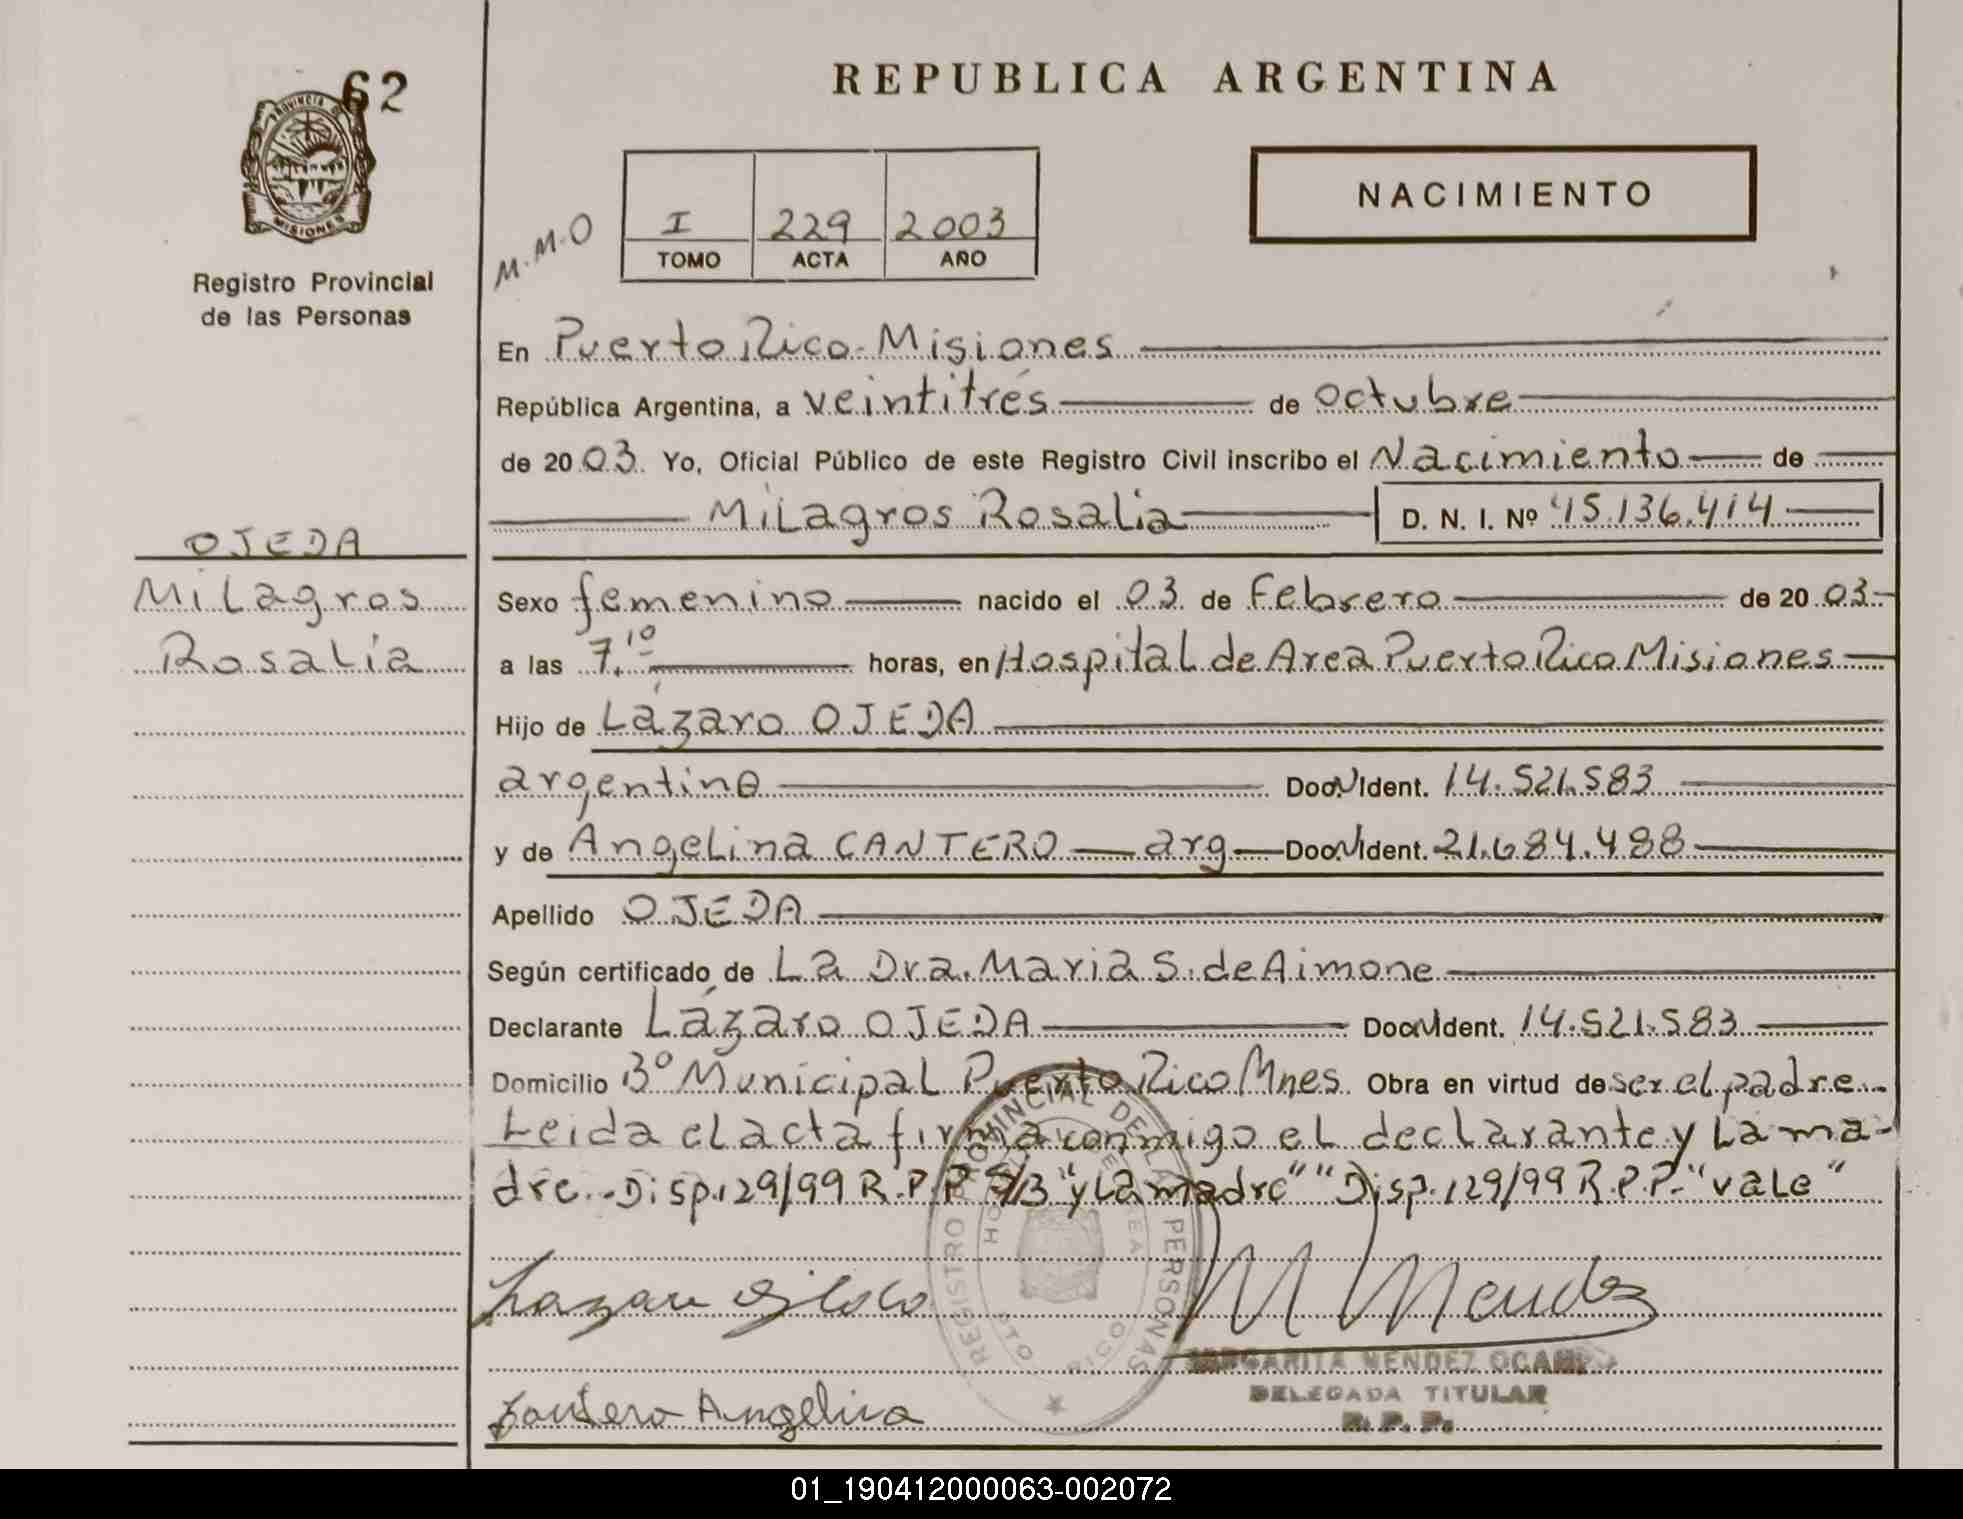 62
PROVINCIA DE
MISIONES
Registro Provincial
de las Personas
REPUBLICA ARGENTINA
NACIMIENTO
M.M.O
I 229 2003
TOMO ACTA AÑO
En Puerto Rico-Misiones
República Argentina, a veintitrés de octubre
de 2003. Yo, Oficial Público de este Registro Civil inscribo el Nacimiento de
Milagros Rosalía D. N. I. Nº 45.136.414
OJEDA
Milagros
Rosalía
Sexo femenino nacido el 03 de Febrero de 2003
a las 7.10 horas, en Hospital de Area Puerto Rico Misiones
Hijo de Lázaro OJEDA
argentina Doc. Ident. 14.521.583
y de Angelina CANTERO arg Doc. Ident. 21.684.488
Apellido OJEDA
Según certificado de La Dra. Maria S. de Aimone
Declarante Lázaro OJEDA Doc. Ident. 14.521.583
Domicilio Bº Municipal Puerto Rico Mnes. Obra en virtud de ser el padre
Leida el acta firma conmigo el declarante y la ma-
dre.-Disp.129/99 R.P.P S/B "y la madre" "Disp.129/99 R.P.P.-"vale"
REGISTRO PROVINCIAL DE LAS PERSONAS
M Mendez
MARGARITA MENDEZ OCAMPO
DELEGADA TITULAR
R. P. P.
Cantero Angelina
01_190412000063-002072